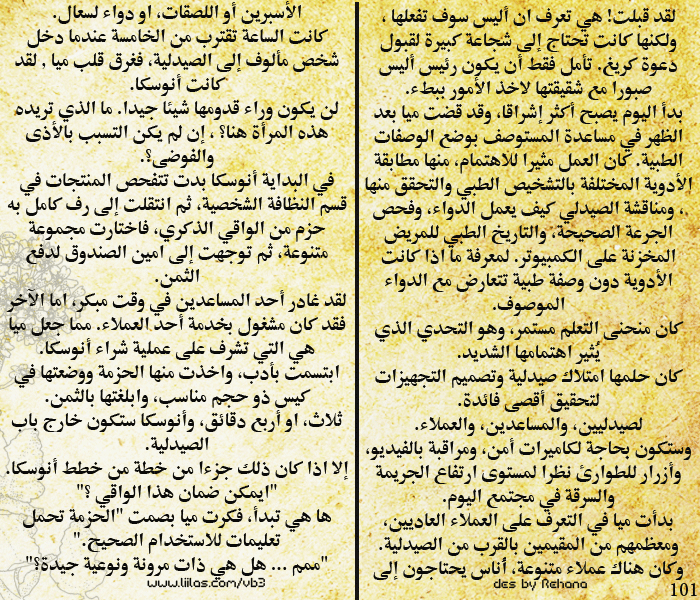 لقد قبلت! هي تعرف ان أليس سوف تفعلها ،
ولكنها كانت تحتاج إلى شجاعة كبيرة لقبول
دعوة كريغ. تأمل فقط أن يكون رئيس أليس
صبورا مع شقيقتها لاخذ الأمور ببطء.
بدأ اليوم يصبح أكثر إشراقا، وقد قضت ميا بعد
الظهر في مساعدة المستوصف بوضع الوصفات
الطبية. كان العمل مثيرا للاهتمام، منها مطابقة
الأدوية المختلفة بالتشخيص الطبي والتحقق منها
، ومناقشة الصيدلي كيف يعمل الدواء، وفحص
الجرعة الصحيحة، والتاريخ الطبي للمريض
المخزنة على الكمبيوتر. لمعرفة ما اذا كانت
الأدوية دون وصفة طبية تتعارض مع الدواء
الموصوف.
كان منحنى التعلم مستمر، وهو التحدي الذي
يُثير اهتمامها الشديد.
كان حلمها امتلاك صيدلية وتصميم التجهيزات
لتحقيق أقصى فائدة.
لصيدليين، والمساعدين، والعملاء.
وستكون بحاجة لكاميرات أمن، ومراقبة بالفيديو،
وأزرار للطوارئ نظرا لمستوى ارتفاع الجريمة
والسرقة في مجتمع اليوم.
بدأت ميا في التعرف على العملاء العاديين،
ومعظمهم من المقيمين بالقرب من الصيدلية.
وكان هناك عملاء متنوعة، أناس يحتاجون إلى
الأسبرين أو اللصقات، او دواء لسعال.
كانت الساعة تقترب من الخامسة عندما دخل
شخص مألوف إلى الصيدلية، فغرق قلب ميا , لقد
كانت أنوسكا.
لن يكون وراء قدومها شيئا جيدا. ما الذي تريده
هذه المرأة هنا؟ ، إن لم يكن التسبب بالأذى
والفوضى؟.
في البداية أنوسكا بدت تتفحص المنتجات في
قسم النظافة الشخصية، ثم انتقلت إلى رف كامل به
حزم من الواقي الذكري، فاختارت مجموعة
متنوعة، ثم توجهت إلى امين الصندوق لدفع
الثمن.
لقد غادر أحد المساعدين في وقت مبكر، اما الآخر
فقد كان مشغول بخدمة أحد العملاء. مما جعل ميا
هي التي تشرف على عملية شراء أنوسكا.
ابتسمت بأدب، واخذت منها الحزمة ووضعتها في
كيس ذو حجم مناسب، وابلغتها بالثمن.
ثلاث، او أربع دقائق، وأنوسكا ستكون خارج باب
الصيدلية.
إلا اذا كان ذلك جزءا من خطة من خطط أنوسكا.
"ايمكن ضمان هذا الواقي ؟"
ها هي تبدأ، فكرت ميا بصمت "الحزمة تحمل
تعليمات للاستخدام الصحيح."
"ممم ... هل هي ذات مرونة ونوعية جيدة؟"
www.liilas.com/vb3
des by Rehana
101